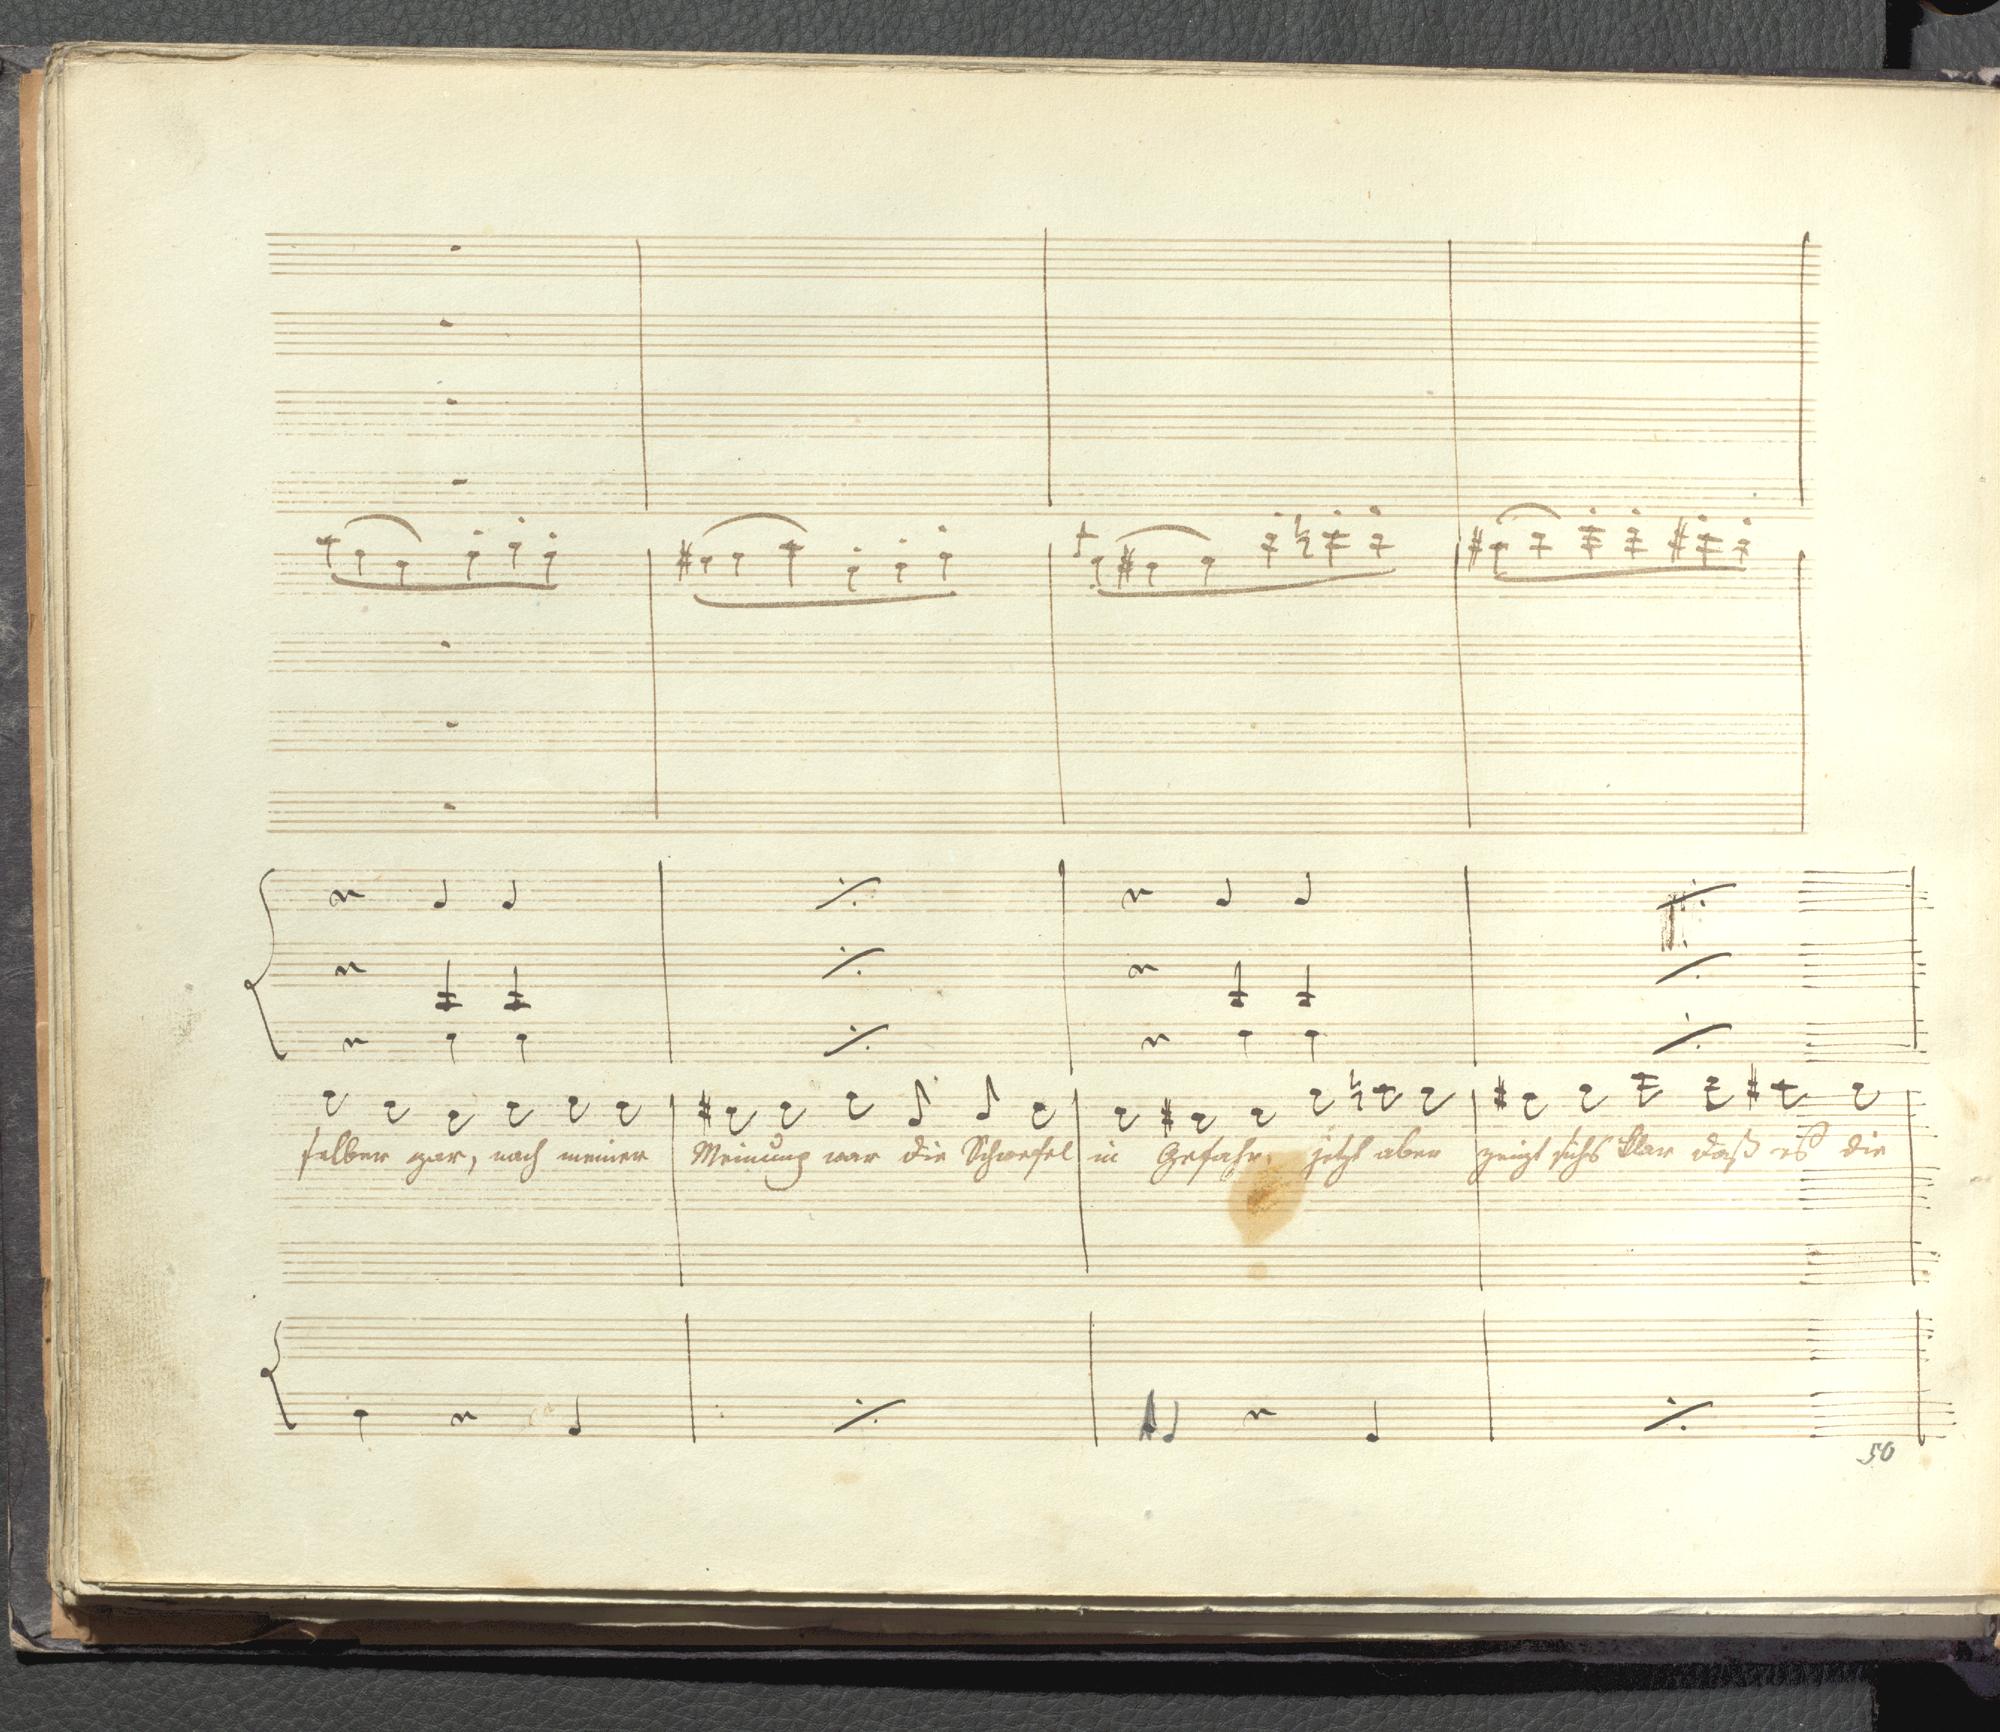 selber gar, nach meiner Meinung war die Schwefel in Gefahr, jetzt aber zeigt sichs klar daß es die
50